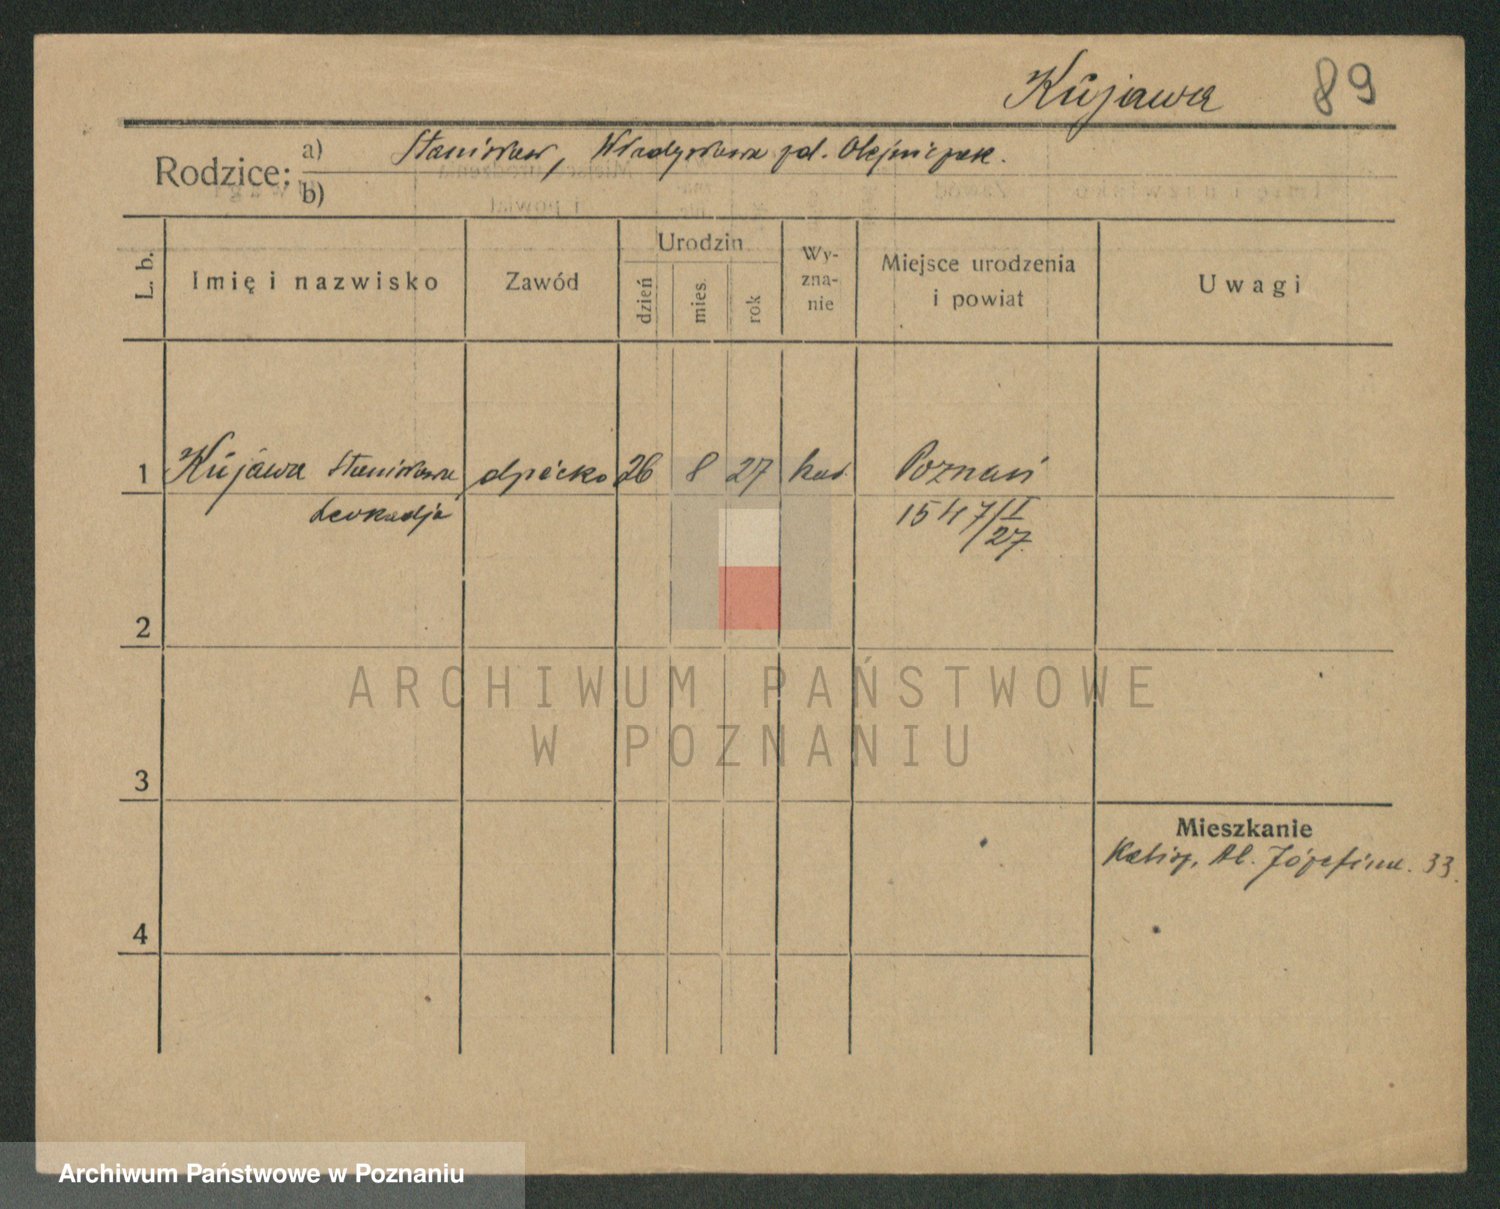 Kujawa 89
Rodzice: a) Stanisław, Władysława zd. Olejniczak.
b)
L. b.
Imię i nazwisko
Zawód
Urodzin
dzień
mies.
rok
Wy-
zna-
nie
Miejsce urodzenia
i powiat
Uwagi
1 Kujawa Stanisława dziecko 26 8 27 kat. Poznań
Leokadja 1547/I
27.
2
ARCHIWUM PAŃSTWOWE
W POZNANIU
3
Mieszkanie
Al. Józefina. 33.
4
Archiwum Państwowe w Poznaniu